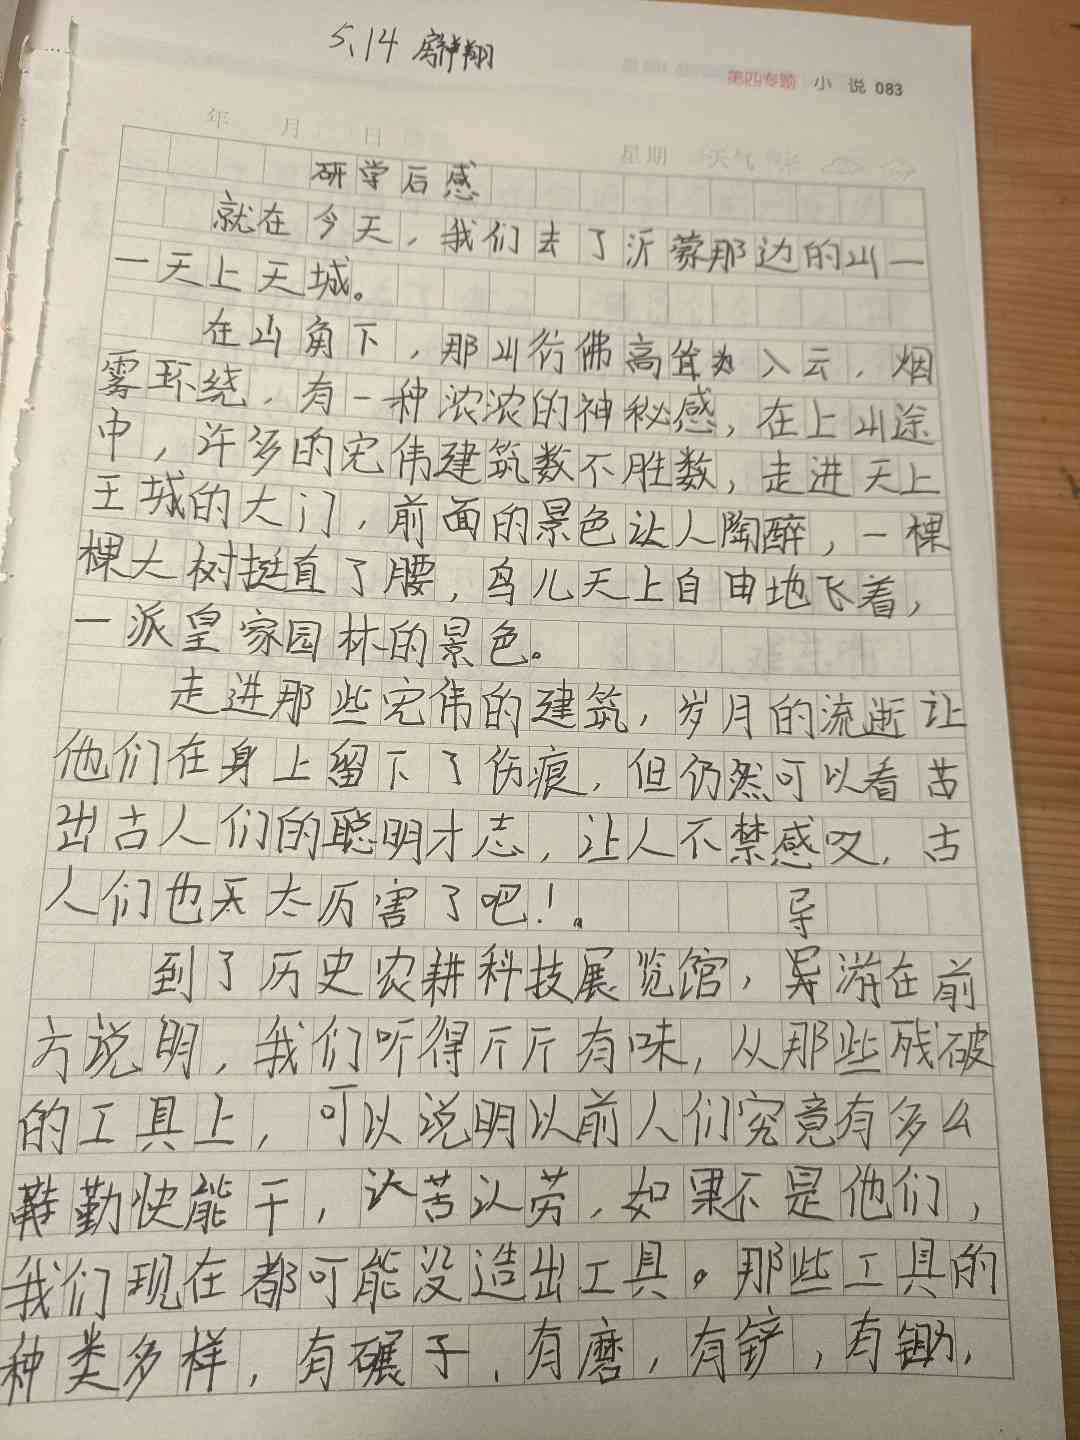 5.14
第四专题 小 说 083
年 月 日
星期 天气
研学后感
就在今天，我们去了沂蒙那边的山一
一天上天城。
在山角下，那山彷佛高耸为入云，烟
雾环绕，有一种浓浓的神秘感，在上山途
中，许多的宏伟建筑数不胜数，走进天上
王城的大门，前面的景色让人陶醉，一棵
棵大树挺直了腰，鸟儿天上自由地飞着，
一派皇家园林的景色。
走进那些宏伟的建筑，岁月的流逝让
他们在身上留下了伤痕，但仍然可以看苦
出古人们的聪明才志，让人不禁感叹，古
人们也天太厉害了吧！。
导
到了历史农耕科技展览馆，导游在前
方说明，我们听得斤斤有味，从那些残破
的工具上，可以说明以前人们究竟有多么
勤快能干，认苦认劳，如果不是他们，
我们现在都可能没造出工具。那些工具的
种类多样，有碾子，有磨，有铲，有锄，